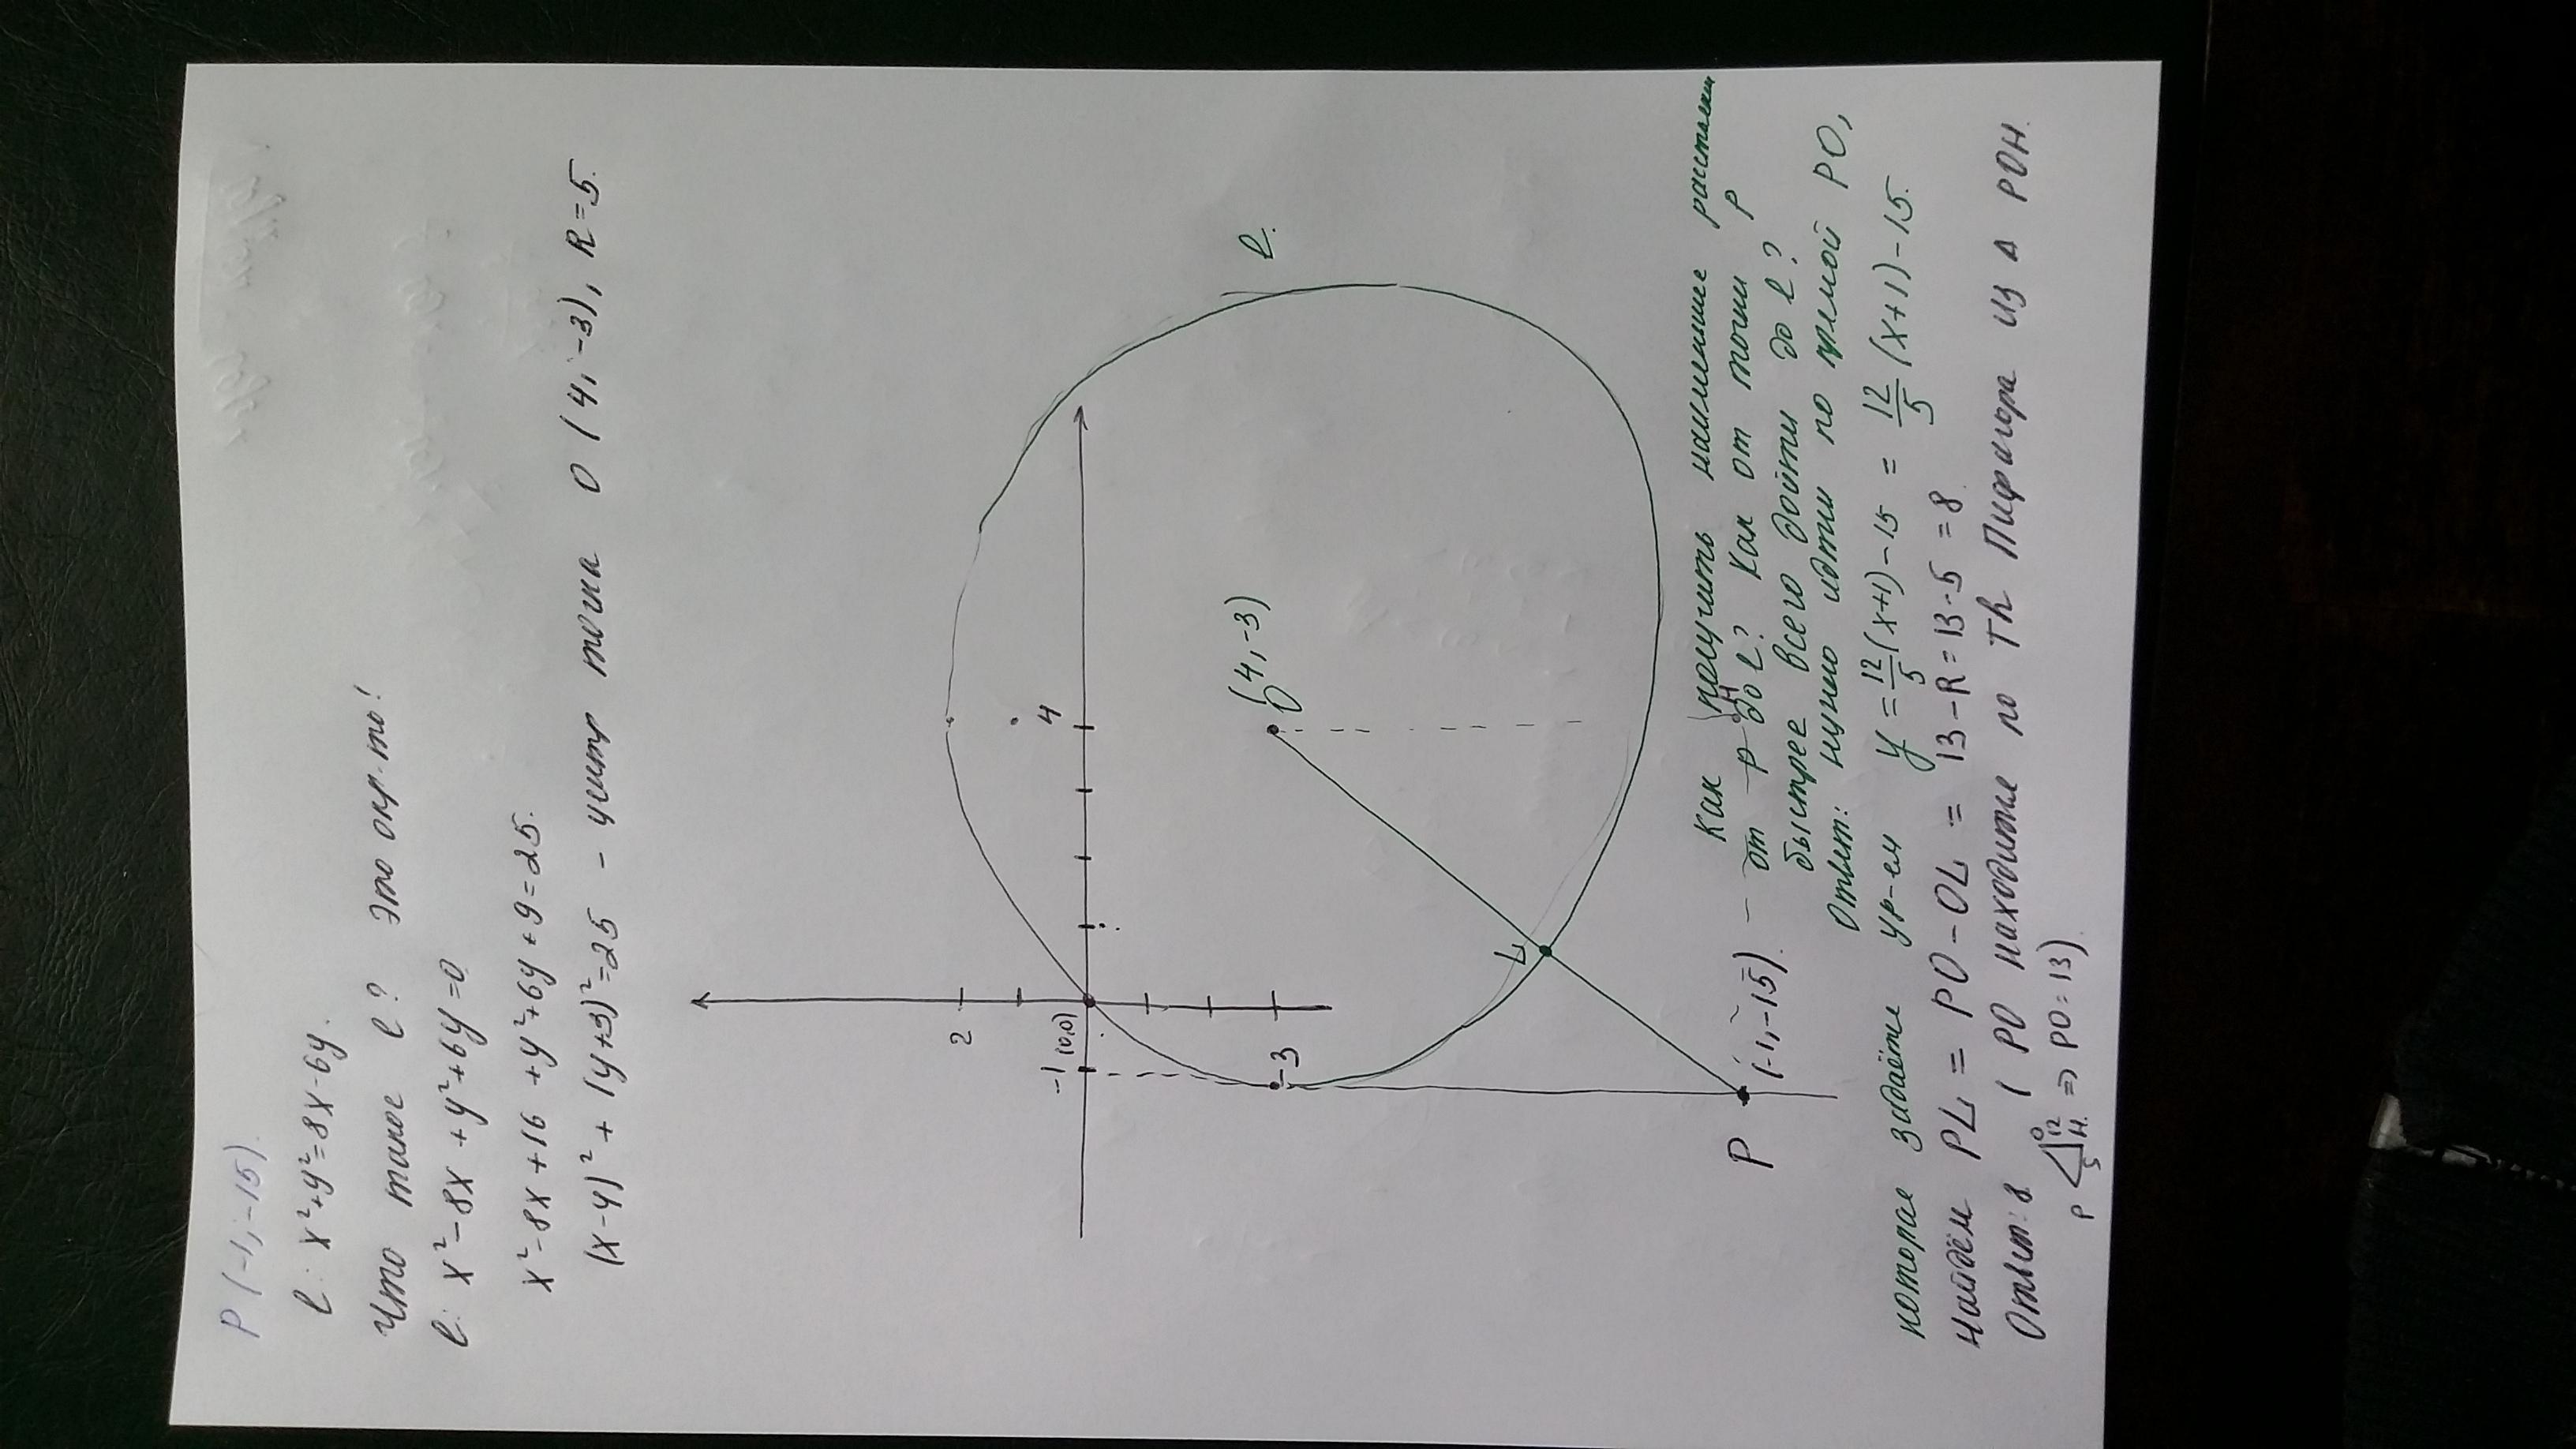 P (-1; -15).
l: x²+y²=8x-6y.
Что такое l? Это окр-ть!
l: x²-8x+y²+6y=0
x²-8x+16+y²+6y+9=25.
(x-4)²+(y+3)²=25 - центр точка O (4; -3), R=5.
2
4
-1
(0,0)
-3
O
(4,-3)
l.
L
P
(-1,-15).
H
Как получить наименьшее расстояни
- от P до l? Как от точки P
быстрее всего дойти до l?
Ответ: нужно идти по прямой PO,
которая задаётся ур-ем y = 12/5 (x+1) - 15 = 12/5 (x+1) - 15.
Найдём PL = PO - OL = 13 - R = 13-5 = 8
Ответ: 8 ( PO находится по Th Пифагора из Δ POH.
P 5 O 12 H. ⇒ PO=13).